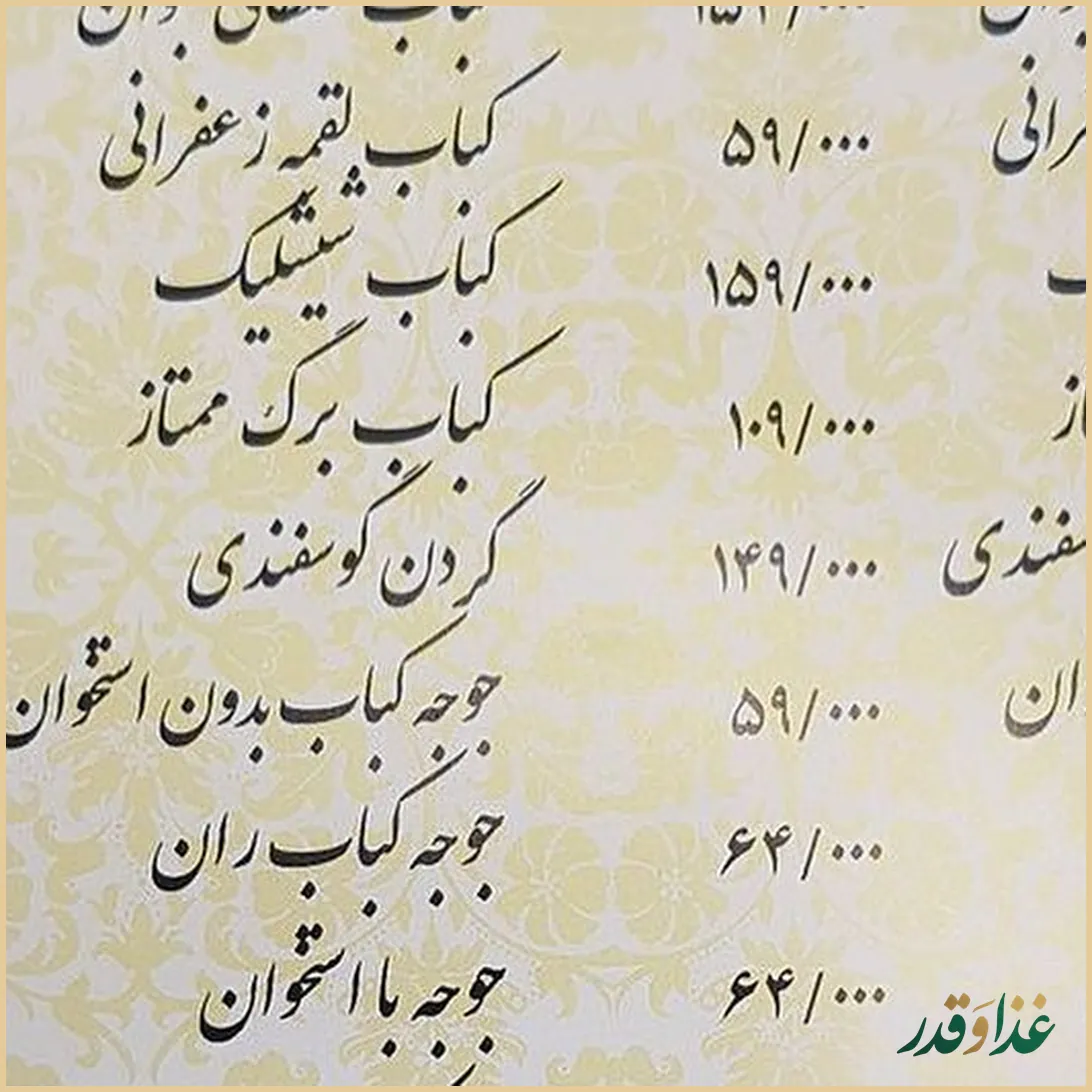 کباب لقمه زعفرانی ۵۹/۰۰۰
کباب شیشلیک ۱۵۹/۰۰۰
کباب برگ ممتاز ۱۰۹/۰۰۰
گردن گوسفندی ۱۴۹/۰۰۰
جوجه کباب بدون استخوان ۵۹/۰۰۰
جوجه کباب ران ۶۴/۰۰۰
جوجه با استخوان ۶۴/۰۰۰
غذا و قدر